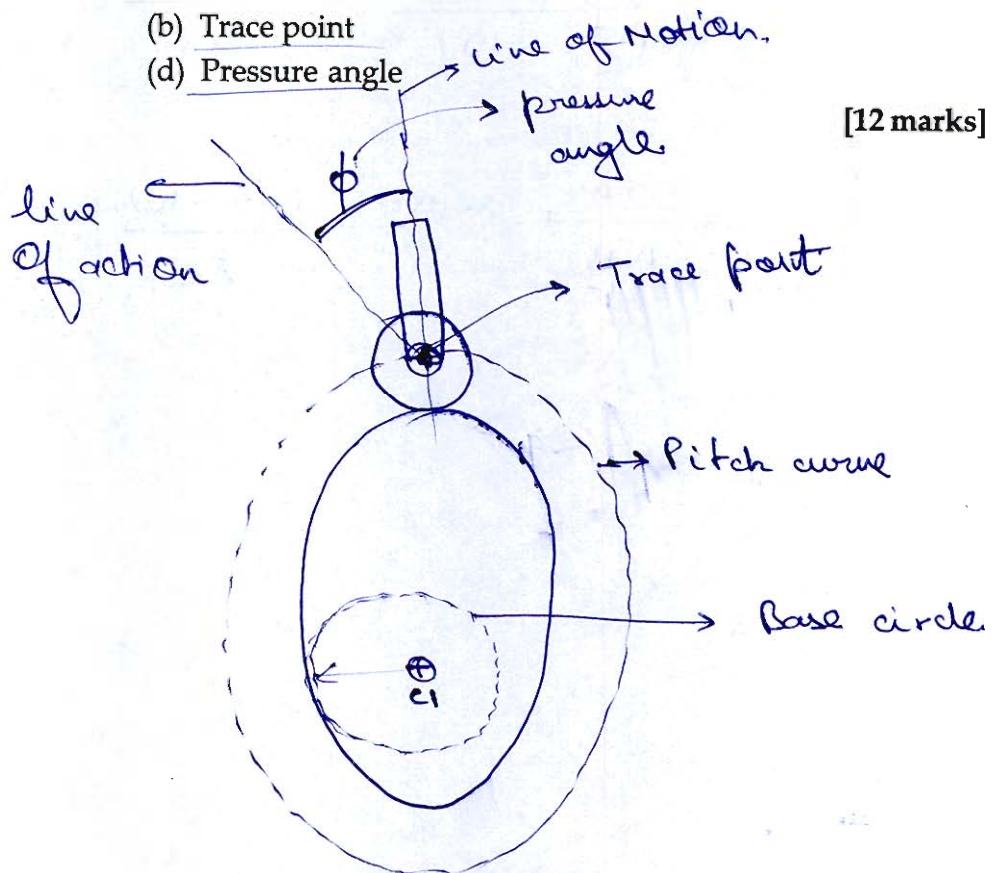 (b) Trace point
(d) Pressure angle
line of Motion.
pressure
angle
[12 marks]
ϕ
line
Of action
Trace point
Pitch curve
Base circle
C1